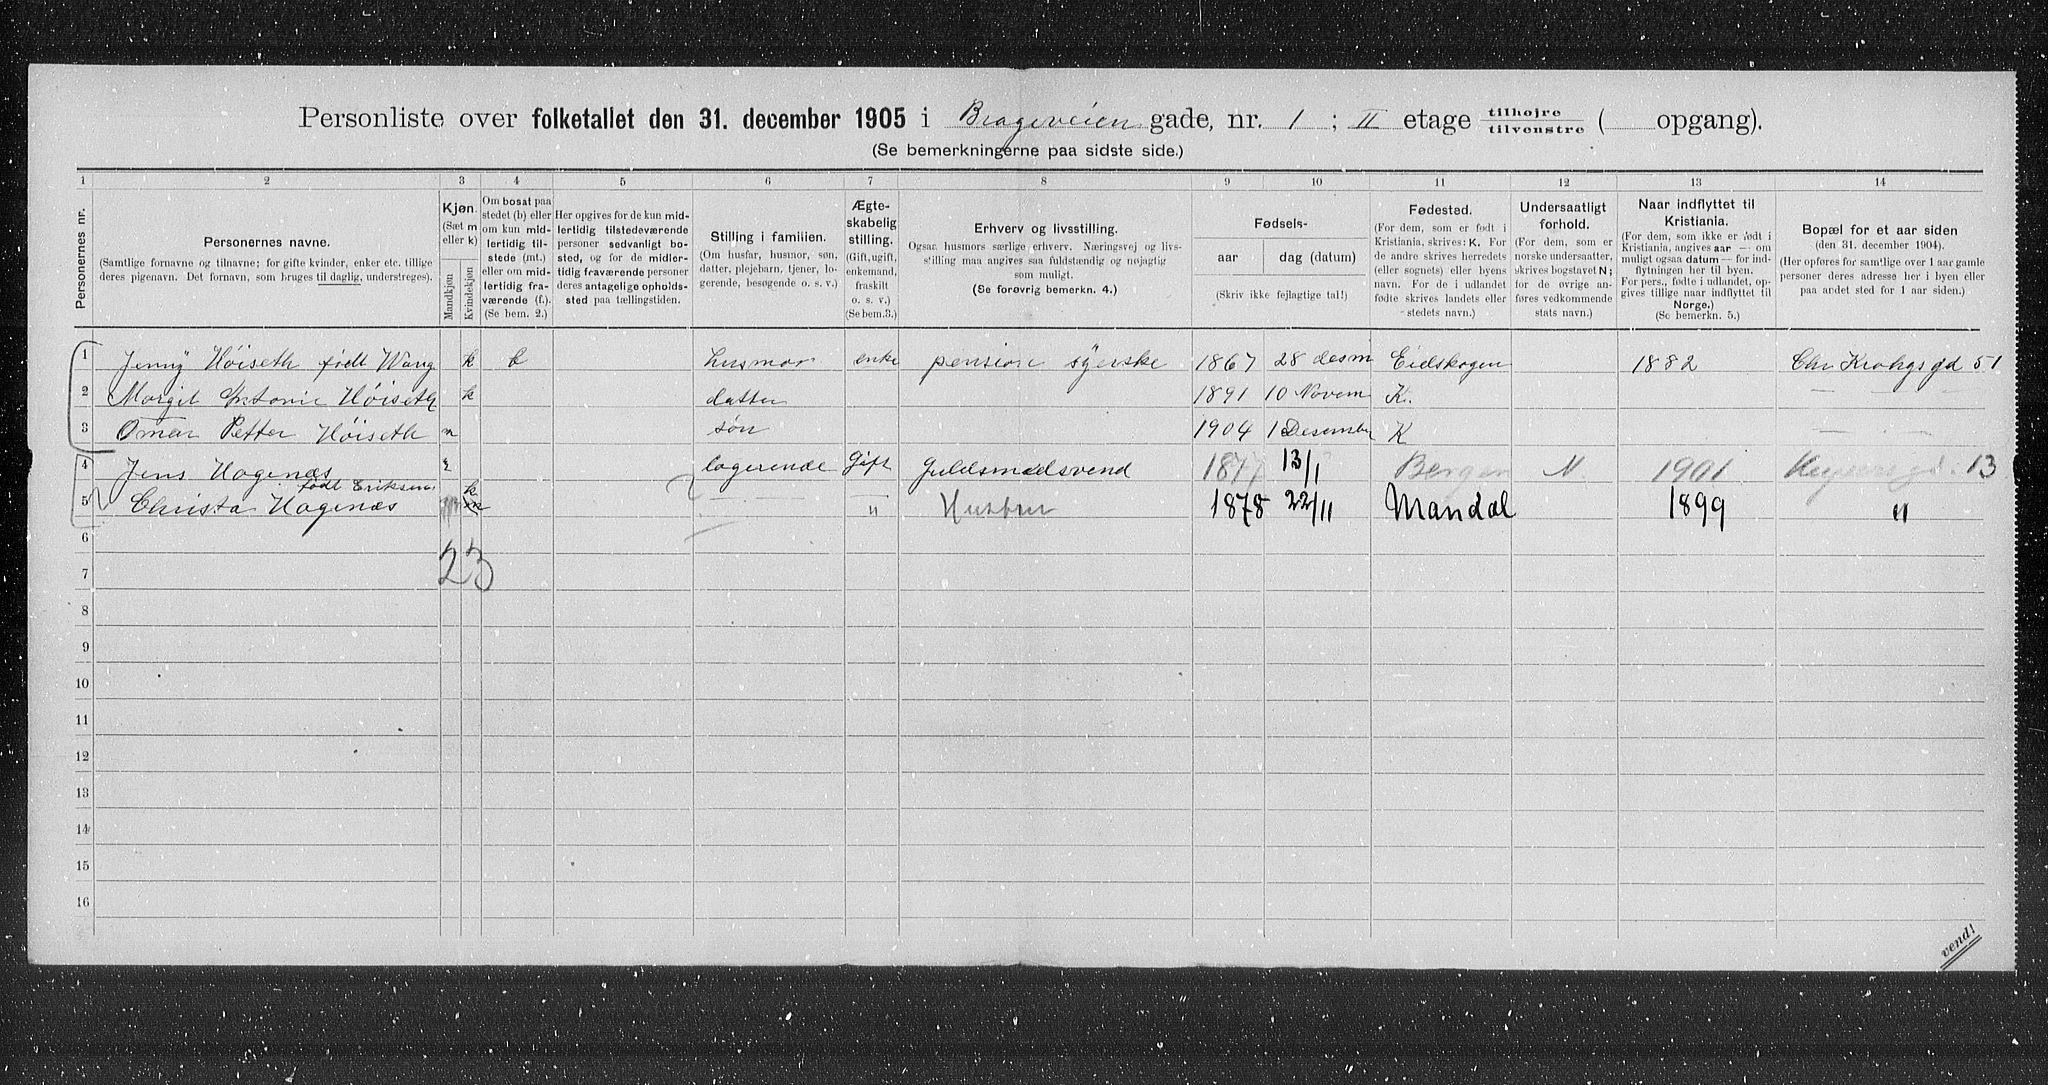 Personliste over folketallet den 31. december 1905 i Brageveien gade, nr. 1 ; II etage tilhøjre tilvenstre ( opgang).
(Se bemerkningerne paa sidste side.)
1 2 3 4 5 6 7 8 9 10 11 12 13 14
Personernes nr.
Personernes navne.
(Samtlige fornavne og tilnavne; for gifte kvinder, enker etc. tillige
deres pigenavn. Det fornavn, som bruges til daglig, understreges).
Kjøn.
(Sæt m
eller k)
Mandkjøn
Kvindekjøn
Om bosat paa
stedet (b) eller
om kun mid-
lertidig til-
stede (mt.)
eller om mid-
lertidig fra-
værende (f.).
(Se bem. 2.)
Her opgives for de kun mid-
lertidig tilstedeværende
personer sedvanligt bo-
sted, og for de midler-
tidig fraværende personer
deres antagelige opholds-
sted paa tællingstiden.
Stilling i familien.
(Om husfar, husmor, søn,
datter, plejebarn, tjener, lo-
gerende, besøgende o. s. v.)
Ægte-
skabelig
stilling.
(Gift, ugift,
enkemand,
fraskilt
o. s. v.)
(Se bem.3.)
Erhverv og livsstilling.
Ogsaa husmors særlige erhverv. Næringsvej og livs-
stilling maa angives saa fuldstændig og nøjagtig
som muligt.
(Se forøvrig bemerkn. 4.)
Fødsels-
aar dag (datum)
(Skriv ikke fejlagtige tal!)
Fødested.
(For dem, som er født i
Kristiania, skrives: K. For
de andre skrives herredets
(eller sognets) eller byens
navn. For de i udlandet
fødte skrives landets eller
stedets navn.)
Undersaatligt
forhold.
(For dem, som er
norske undersaatter,
skrives bogstavet N;
for de øvrige an-
føres vedkommende
stats navn.)
Naar indflyttet til
Kristiania.
(For dem, som ikke er født i
Kristiania, angives aar — om
muligt ogsaa datum — for ind-
flytningen her til byen.
For pers., fødte i udlandet, op-
gives tillige naar indflyttet til
Norge.)
(Se bemerkn. 5.)
Bopæl for et aar siden
(den 31. december 1904).
(Her opføres for samtlige over 1 aar gamle
personer deres adresse her i byen eller
paa andet sted for 1 aar siden.)
1 Jenny Høiseth født Wang k b husmor enke pension syerske 1867 28 desm Eidskogen 1882 Chr Krohgs gd 51
2 Margit Antonie Høiseth k datter 1891 10 Novem K. — —
3 Omar Petter Høiseth m søn 1904 1 Desember K — —
4 Jens Hagenæs logerende Gift Guldsmedsvend 1877 13/1 Bergen N. 1901 Keysersgd. 13
født Eriksen k
5 Christa Hagenæs m — " Hustru 1878 22/11 Mandal 1899 "
6
23
7
8
9
10
11
12
13
14
15
16
vend!